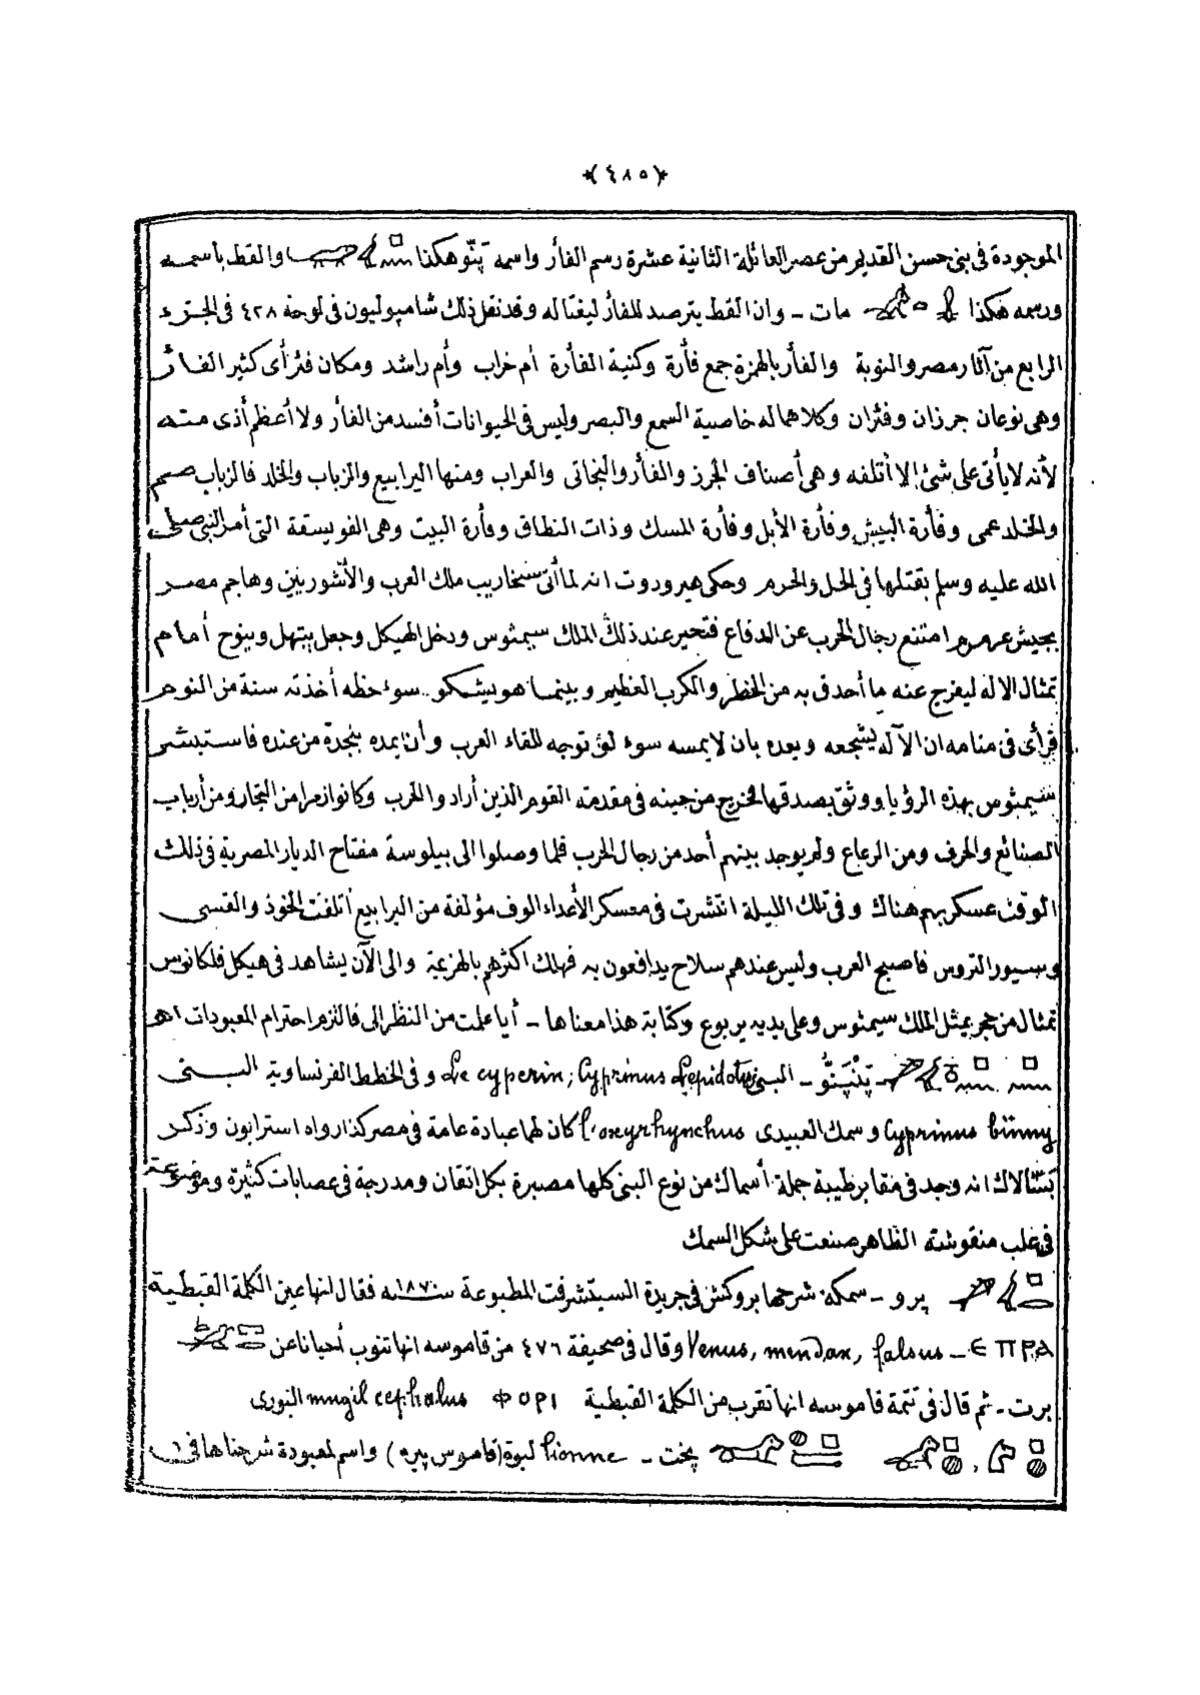 ﴿٤٨٥﴾
الموجودة فى بنى حسن القديم من عصر العائلة الثانية عشرة رسم الفأر واسمه پَنّو هكذا والقط باسمه
ورسمه هكذا مات ـ وان القط يترصد للفأر ليغتاله وقد نقل ذلك شامپوليون فى لوحة ٤٢٨ فى الجزء
الرابع من آثار مصر والنوبة والفأر بالهمزة جمع فأرة وكنية الفأرة أم خراب وأم راشد ومكان فئر أى كثير الفأر
وهى نوعان جرزان وفئران وكلاهما له خاصية السمع والبصر وليس فى الحيوانات أفسد من الفأر ولا أعظم أذى منه
لأنه لا يأتى على شئ إلا أتلفه وهى أصناف الجرز والفأر والنجاتى والعراب ومنها اليرابيع والزباب والخلد فالزباب صم
والخلد عمى وفأرة البيش وفأرة الأبل وفأرة المسك وذات النطاق وفأرة البيت وهى الفويسقة التى أمر النبى صلى
الله عليه وسلم بقتلها فى الحل والحرم وحكى هيرودوت انه لما أتى سنخاريب ملك العرب والأشوريين وهاجم مصر
بجيش عرمرم امتنع رجال الحرب عن الدفاع فتحير عند ذلك الملك سيمثوس ودخل الهيكل وجعل يبتهل وينوح أمام
تمثال الاله ليفرج عنه ما أحدق به من الخطر والكرب العظيم وبينما هو يشكو سوء حظه أخذته سنة من النوم
فرأى فى منامه ان الآله يشجعه ويعده بان لا يمسه سوء لو توجه للقاء العرب وأن يمده بنجدة من عنده فاستبشر
سيمثوس بهذه الرؤيا ووثق بصدقها فخرج من حينه فى مقدمة القوم الذين أرادوا الحرب وكانوا زمرا من التجار ومن أرباب
الصنائع والحرف ومن الرعاع ولم يوجد بينهم أحد من رجال الحرب فلما وصلوا الى بيلوسة مفتاح الديار المصرية فى ذلك
الوقت عسكر بهم هناك وفى تلك الليلة انتشرت فى معسكر الأعداء الوف مؤلفة من اليرابيع أتلفت الخوذ والقسى
وسيور التروس فاصبح العرب وليس عندهم سلاح يدافعون به فهلك اكثرهم بالهزيمة والى الآن يشاهد فى هيكل فلكانوس
تمثال من حجر يمثل الملك سيمثوس وعلى يديه يربوع وكتابة هذا معناها ـ أيا علمت من النظر الى فالتزم احترام المعبودات اهـ
ـ پَنْپَنُّو ـ البنى Le cyperin; Cyprinus Lepidotus وفى الخطط الفرنساوية البنى
Cyprinus binny وسمك العبيدى l'oxyrhynchus كان لهما عبادة عامة فى مصر كذا رواه استرابون وذكر
پتتالاك انه وجد فى مقابر طيبة جملة أسماك من نوع البنى كلها مصبرة بكل إتقان ومدرجة فى عصابات كثيرة وموضوعة
فى علب منقوشة الظاهر صنعت على شكل السمك
پرو ـ سمكة شرحها بروكش فى جريدة السيتشرفت المطبوعة سنة ١٨٧٠ فقال انها عين الكلمة القبطية
ⲈⲠⲢⲀ ـ Venus, mendax, falsus وقال فى صحيفة ٤٧٦ من قاموسه انها تنوب أحيانا عن
برت ـ ثم قال فى تتمة قاموسه انها تقرب من الكلمة القبطية ⲪⲞⲢⲒ mugil cephalus البورى
پخت ـ lionne لبوة (قاموس پيره) واسم لمعبودة شرحناها فى